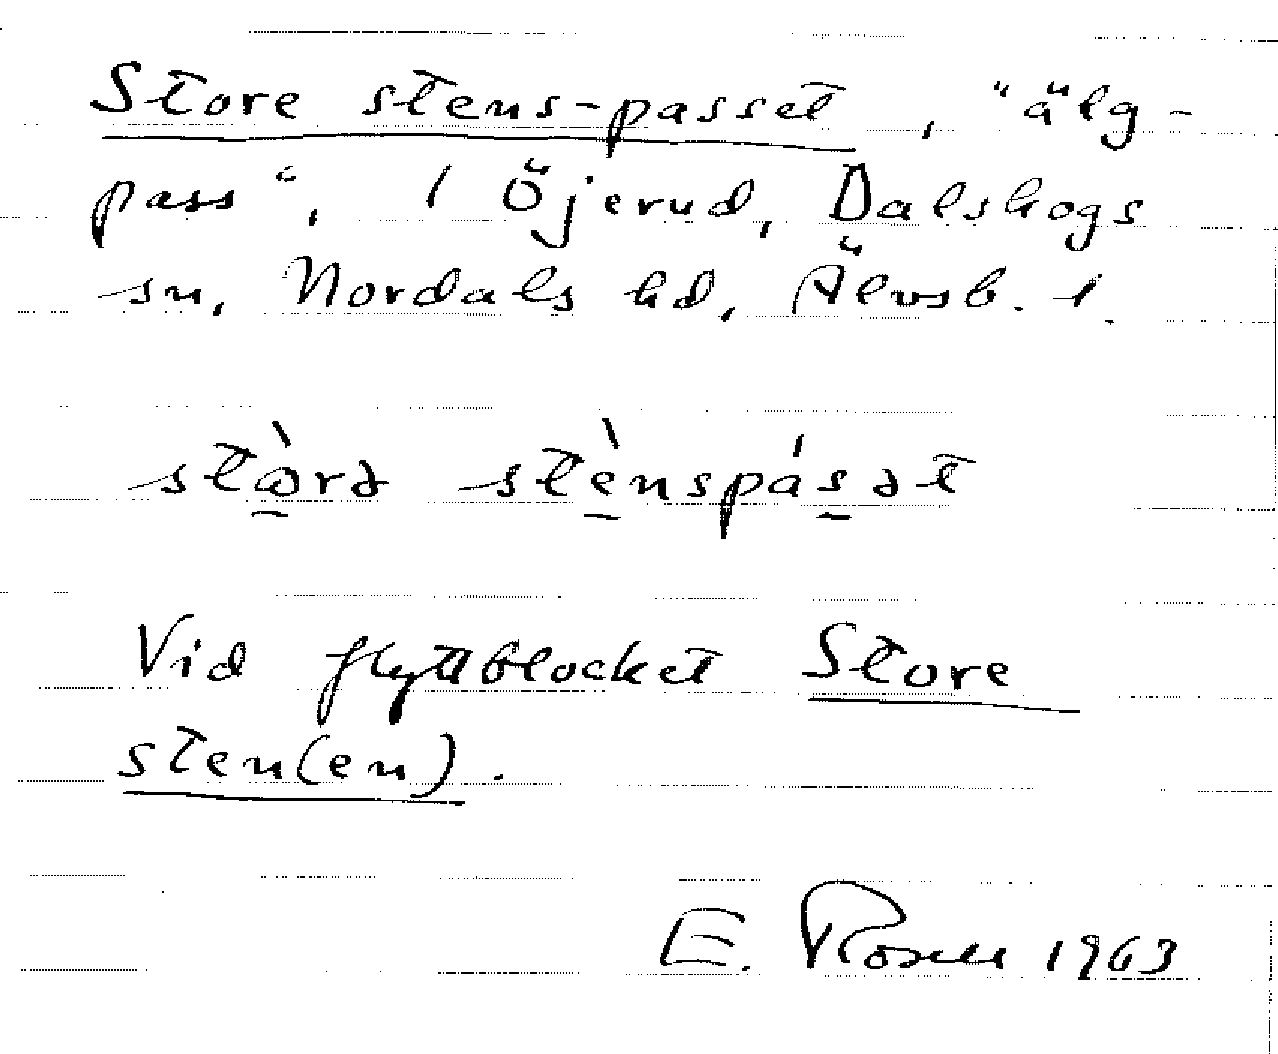 Store stens-passet, "älg-
pass", 1 Öjerud, Dalskogs
sn, Nordals hd, Älvsb. l.
stò̱rə stè̱nspás̱ət
Vid flyttblocket Store
sten(en).
E. Rosell 1963